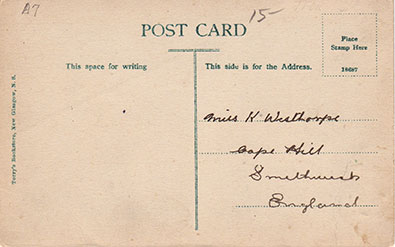 A7
15-
POST CARD
Place
Stamp Here
18697
This space for writing
This side is for the Address.
Terry's Bookstore, New Glasgow, N. S.
Miss K Westhorpe
Cape Hill
Smethwick
England